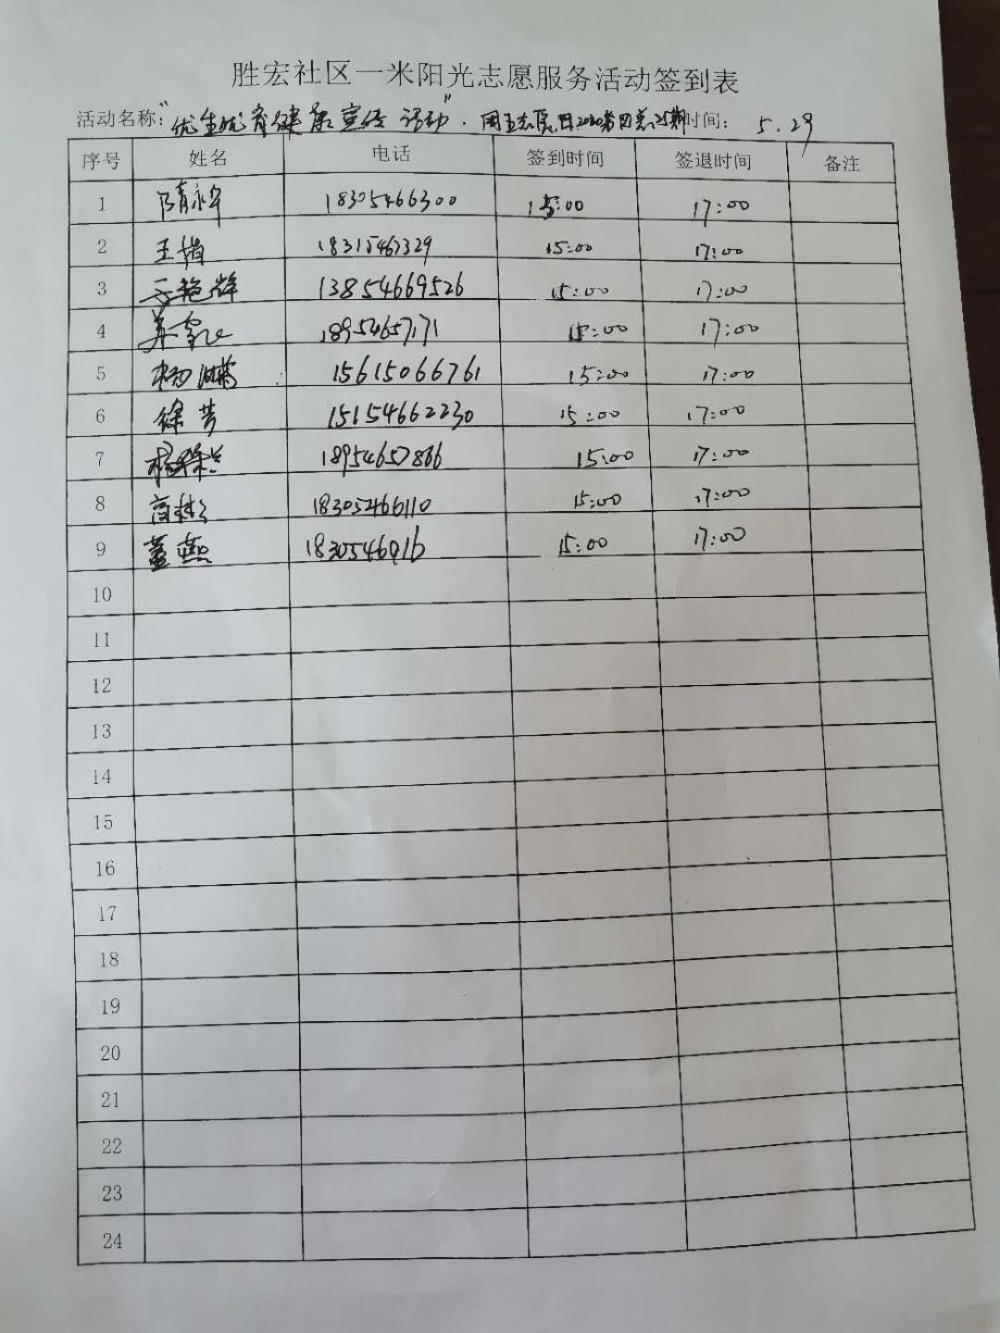 胜宏社区一米阳光志愿服务活动签到表
活动名称：“优生优育健康宣传活动”．周五志愿日2020第四总25期 时间： 5.29
序号 姓名 电话 签到时间 签退时间 备注
1 隋永华 18305466300 15:00 17:00
2 王娟 18315462329 15:00 17:00
3 于艳辉 13854669526 15:00 17:00
4 18954657171 15:00 17:00
5 杨琳 15615066761 15:00 17:00
6 徐芳 15154662230 15:00 17:00
7 18954657866 15:00 17:00
8 18305466110 15:00 17:00
9 董燕 1830546916 15:00 17:00
10
11
12
13
14
15
16
17
18
19
20
21
22
23
24